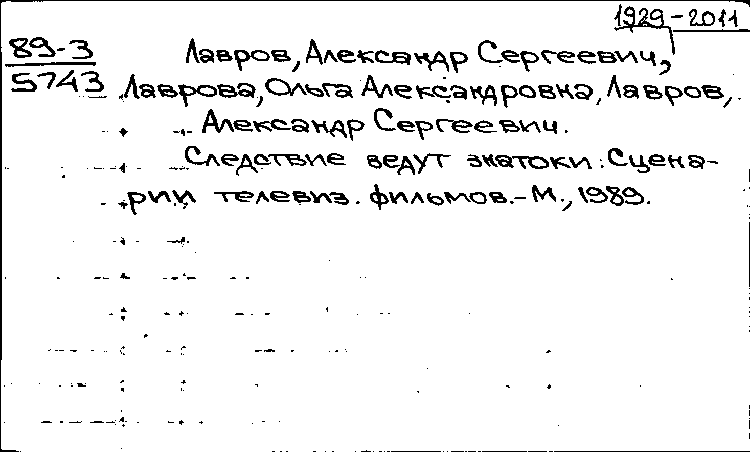 1929-2011
89-3 Лавров, Александр Сергеевич,
5743 Лаврова, Ольга Александровна, Лавров,
Александр Сергеевич.
Следствие ведут знатоки: Сцена-
рии телевиз. фильмов.-М., 1989.